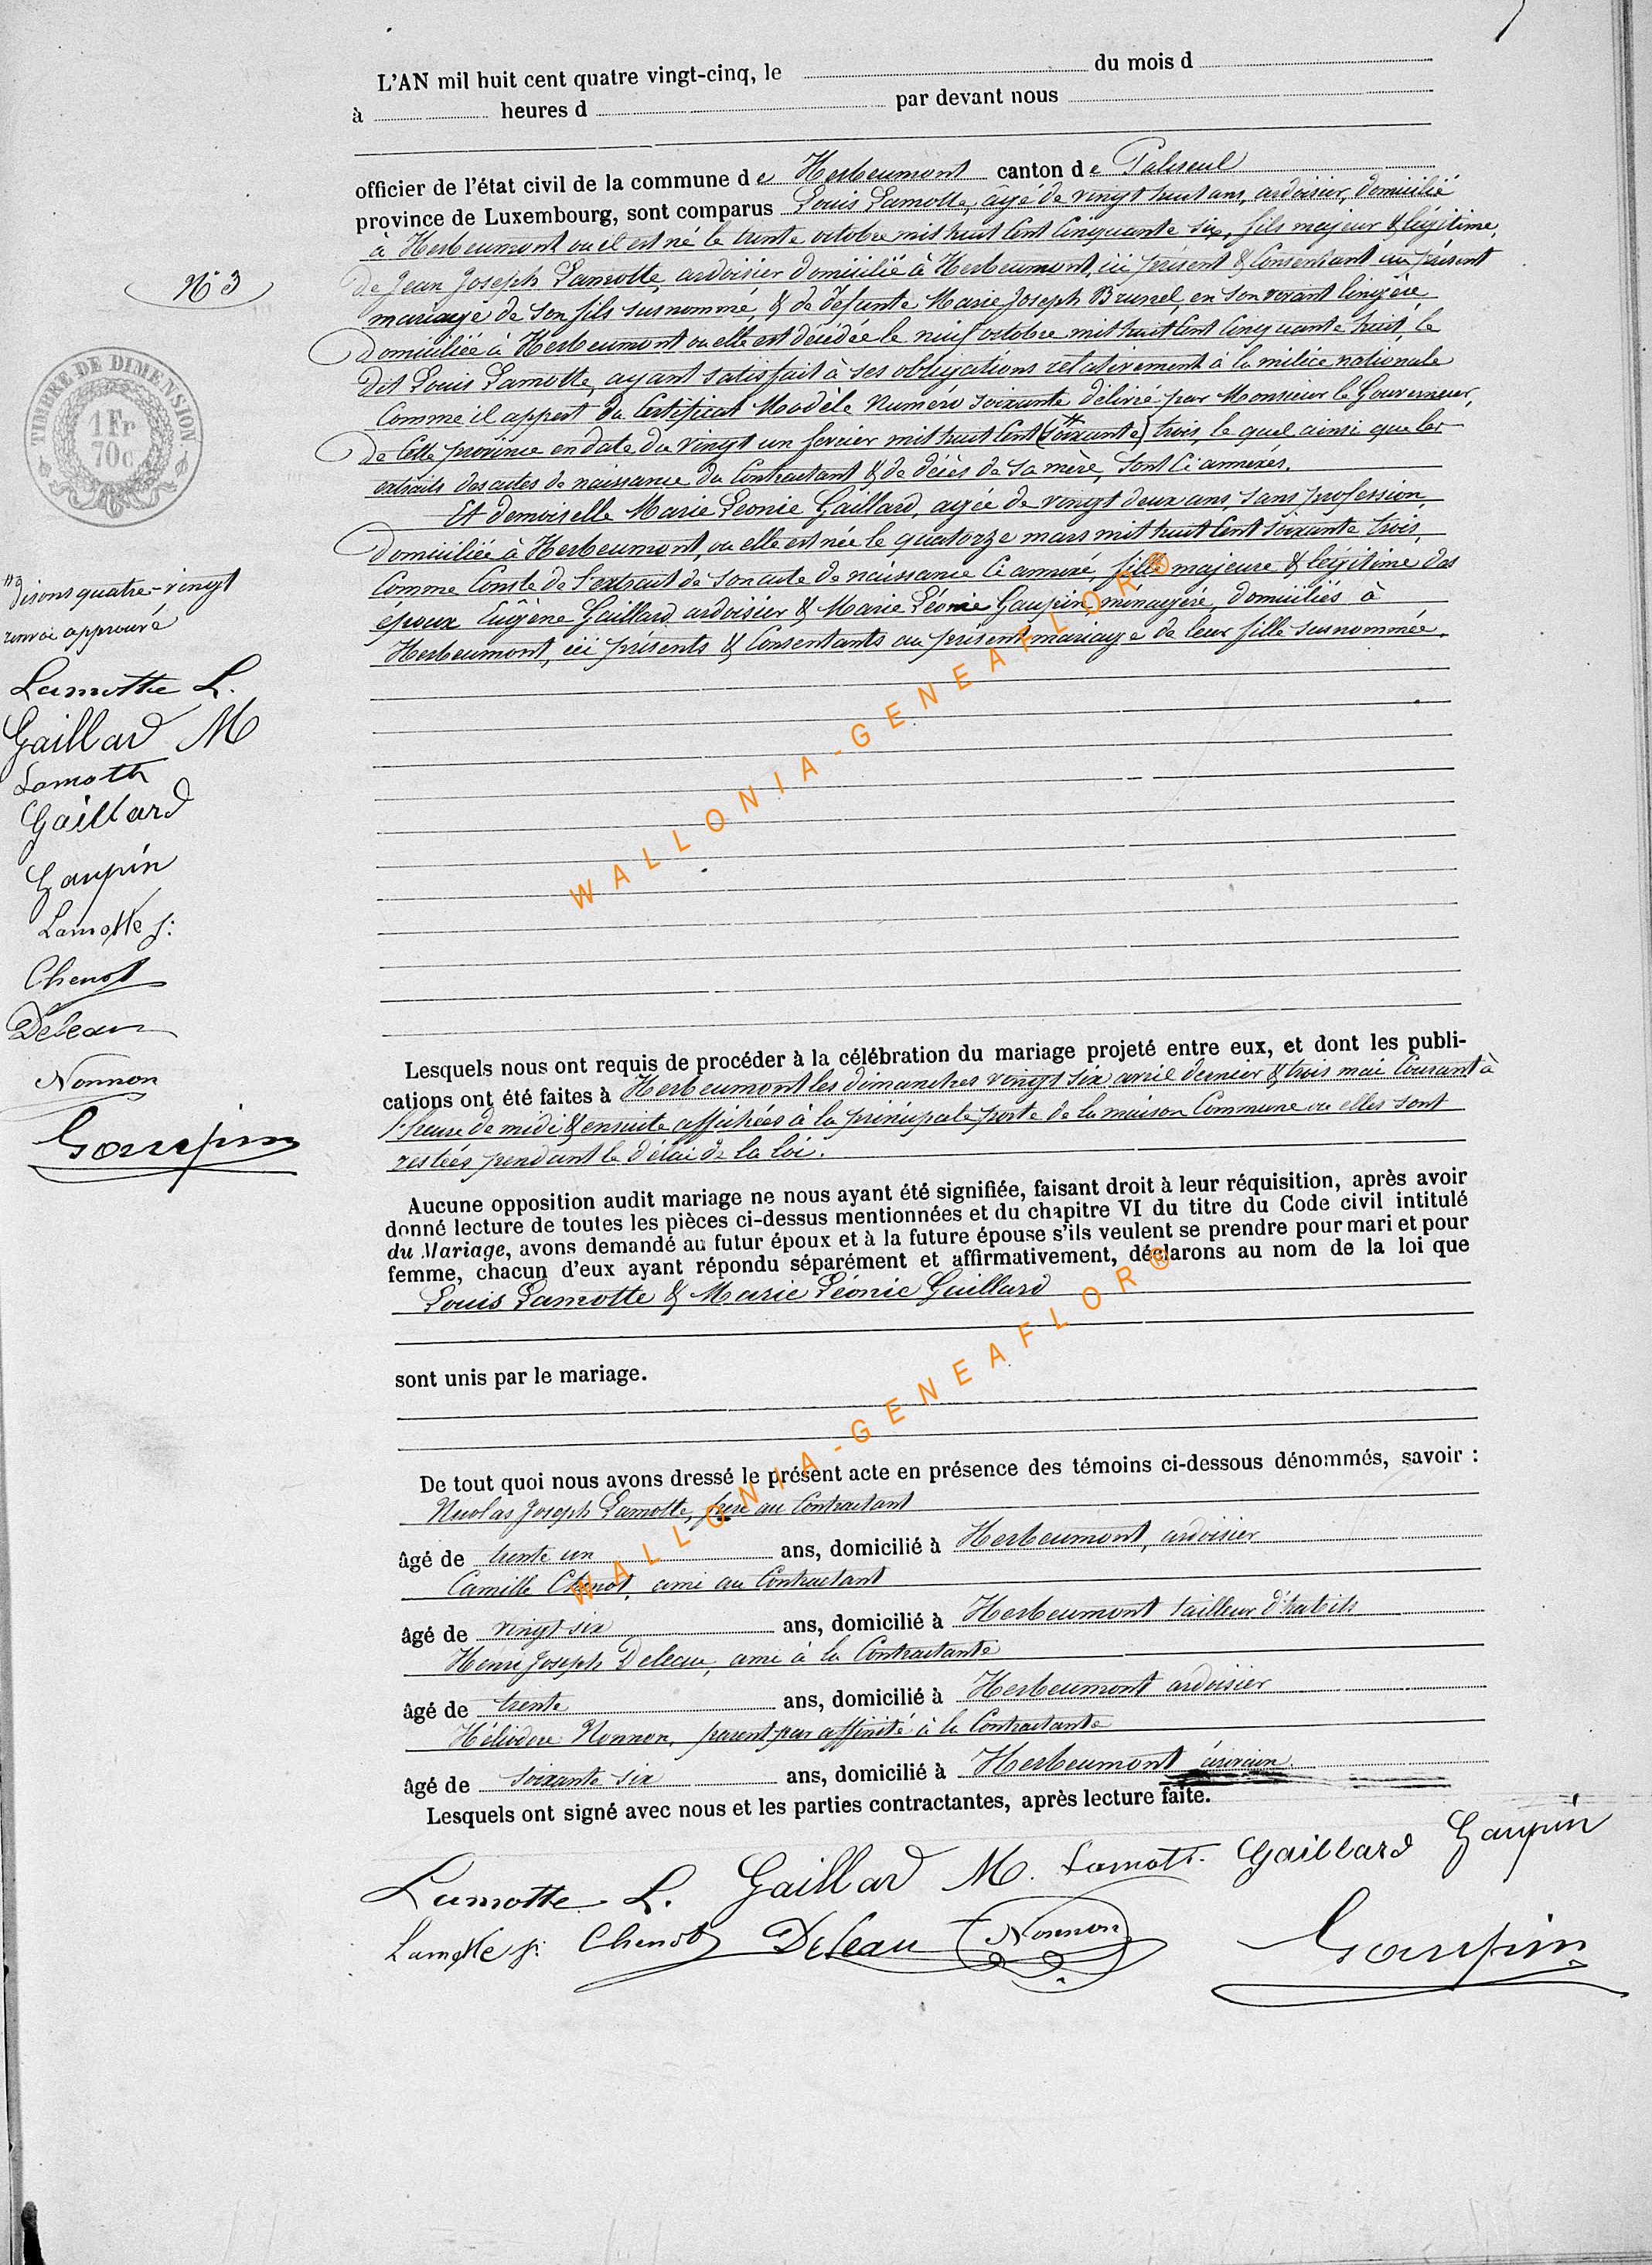 L'AN mil huit cent quatre vingt-cinq, le du mois d
à heures d par devant nous
officier de l'état civil de la commune de Herbeumont canton de Paliseul
province de Luxembourg, sont comparus Louis Lamotte, âgé de vingt huit ans, ardoisier, domicilié
à Herbeumont ou il est né le trente octobre mil huit cent cinquante six, fils majeur & légitime,
N° 3
de Jean Joseph Lamotte, ardoisier domicilié à Herbeumont, ici présent & consentant au présent
mariage de son fils susnommé, & de défunte Marie Joseph Brunel, en son vivant lingère
domiciliée à Herbeumont ou elle est décédée le neuf octobre mil huit cent cinquante huit, le
dit Louis Lamotte, ayant satisfait à ses obligations relativement à la milice nationale
comme il appert du certificat Modèle Numéro soixante délivré par Monsieur le Gouverneur,
de cette province en date du vingt un fevrier mil huit cent (soixante) trois, le quel ainsi que les
extraits des actes de naissance du contractant & de décès de sa mère, sont ci annexés.
TIMBRE DE DIMENSION
1 Fr
70c
Et demoiselle Marie Leonie Gaillard, agée de vingt deux ans, sans profession,
domiciliée à Herbeumont, ou elle est née le quatorze mars mil huit cent soixante trois,
comme conste de l'extrait de son acte de naissance ci annexé, fille majeure & légitime des
époux Eugène Gaillard ardoisier & Marie Léonie Gaupin, ménagère, domiciliés à
Herbeumont, ici présents & consentants au présent mariage de leur fille susnommée.
disons quatre-vingt
renvoi approuvé
Lamotte L.
Gaillard M
Lamotte
Gaillard
Gaupin
Lamotte j:
Chenot
Deleau
Nonnon
Gaupin
WALLONIA-GENEAFLOR®
Lesquels nous ont requis de procéder à la célébration du mariage projeté entre eux, et dont les publi-
cations ont été faites à Herbeumont les dimanches vingt six avril dernier & trois mai courant à
l'heure de midi & ensuite affichées à la principale porte de la maison Commune ou elles sont
restées pendant le délai de la loi.
Aucune opposition audit mariage ne nous ayant été signifiée, faisant droit à leur réquisition, après avoir
donné lecture de toutes les pièces ci-dessus mentionnées et du chapitre VI du titre du Code civil intitulé
du Mariage, avons demandé au futur époux et à la future épouse s'ils veulent se prendre pour mari et pour
femme, chacun d'eux ayant répondu séparément et affirmativement, déclarons au nom de la loi que
Louis Lamotte & Marie Léonie Gaillard
sont unis par le mariage.
WALLONIA-GENEAFLOR®
De tout quoi nous avons dressé le présent acte en présence des témoins ci-dessous dénommés, savoir :
Nicolas Joseph Lamotte, frère au contractant
âgé de trente un ans, domicilié à Herbeumont, ardoisier
Camille Chenot, ami au contractant
âgé de vingt six ans, domicilié à Herbeumont tailleur d'habits
Henri Joseph Deleau, ami à la Contractante
âgé de trente ans, domicilié à Herbeumont ardoisier
Héliodore Nonnon, parent par affinité à la Contractante
âgé de soixante six ans, domicilié à Herbeumont
Lesquels ont signé avec nous et les parties contractantes, après lecture faite.
Lamotte L. Gaillard M. Lamott. Gaillard Gaupin
Lamotte j: Chenot Deleau Nonnon Gaupin